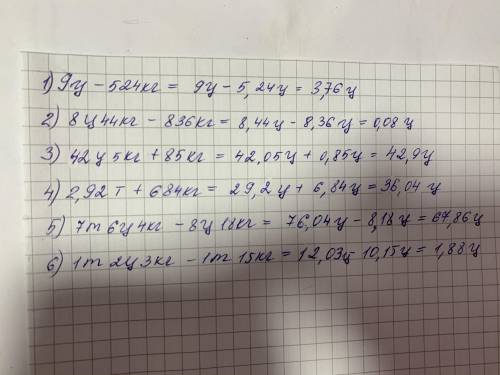 1) 9ц - 524кг = 9ц - 5,24ц = 3,76 ц
2) 8ц44кг - 836кг = 8,44ц - 8,36ц = 0,08ц
3) 42ц 5кг + 85кг = 42,05ц + 0,85ц = 42,9ц
4) 2,92 т + 684кг = 29,2ц + 6,84ц = 36,04 ц
5) 7т 6ц 4кг - 8ц 18кг = 76,04ц - 8,18ц = 67,86ц
6) 1т 2ц 3кг - 1т 15кг = 12,03ц - 10,15ц = 1,88ц